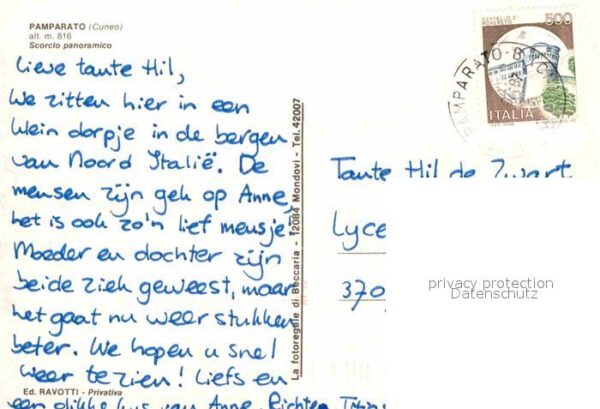 PAMPARATO (Cuneo)
alt. m. 816
Scorcio panoramico
Lieve tante Hil,
We zitten hier in een
klein dorpje in de bergen
van Noord Italië. De
mensen zijn gek op Anne,
het is ook zo'n lief meusje!
Moeder en dochter zijn
beide ziek geweest, maar
het gaat nu weer stukken
beter. We hopen u snel
weer te zien! Liefs en
een dikke kus van Anne, Richter,
Ed. RAVOTTI - Privativa
La fotoregale di Beccaria - 12084 Mondovì - Tel. 42007
500
ITALIA
PAMPARATO
Tante Hil de Zwart
Lyce
370
privacy protection
Datenschutz